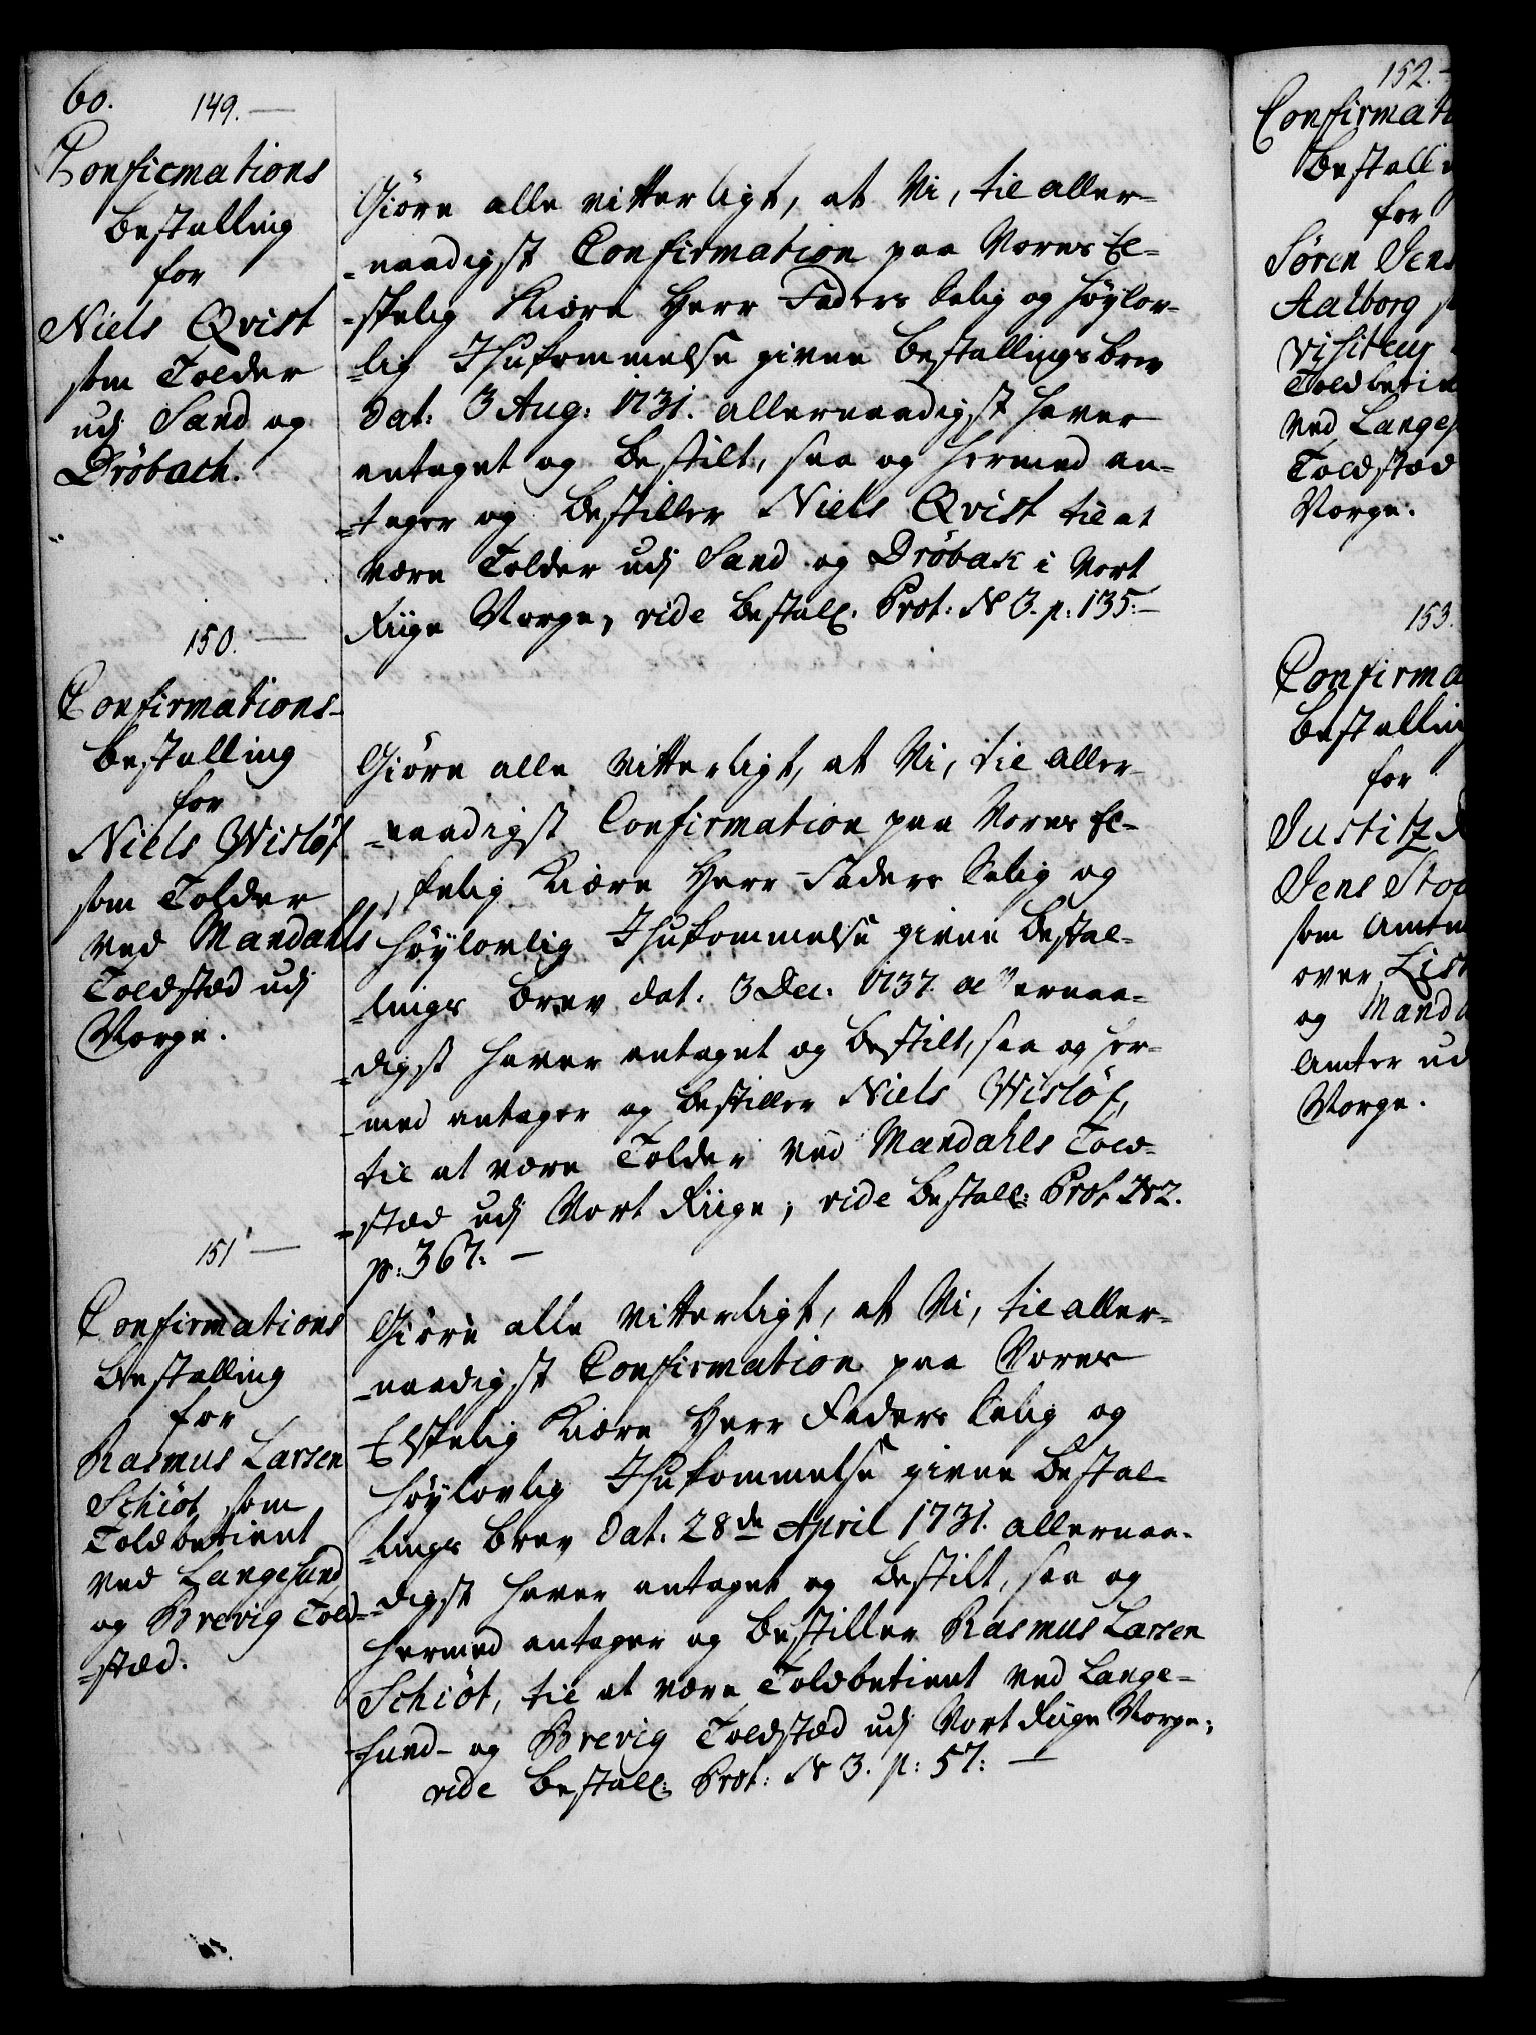 60.
149. —
Confirmations
Bestalling
for
Niels Qvist
som Tolder
udj Sand og
Dröbach.
Giöre alle vitterligt, at Vi, til aller-
-naadigst Confirmation paa Vores El-
-skelig Kiære Herr Faders Salig og Höylov-
-lig Ihukommelse givne Bestallings brev
dat: 3 Aug: 1731. allernaadigst haver
antaget og bestilt, saa og hermed an-
-tager og bestiller Niels Qvist til at
være Tolder udj Sand og Dröbak i Vort
Riige Norge, vide Bestall: Prot: N 3. p: 135: —
150. —
Confirmations-
bestalling
for
Niels Wislöf
som Tolder
ved Mandahls
Toldstæd udj
Norge.
Giöre alle vitterligt, at Vi, til aller-
-naadigst Confirmation paa Vores El-
skelig Kiære Herr Faders Salig og
Höylovlig Ihukommelse givne Bestal-
-lings brev dat. 3 Dec. 1737. allernaa-
-digst haver antaget og bestilt, saa og her-
-med antager og bestiller Niels Wislöf,
til at være Tolder ved Mandahls Told-
-stæd udj Vort Riige, vide Bestall: Prot N 2.
p: 367: —
151 —
Confirmations
Bestalling
for
Rasmus Larsen
Schiöt som
Toldbetient
ved Langesund
og Brevig Told-
-stæd.
Giöre alle vitterligt, at Vi, til aller-
-naadigst Confirmation paa Vores
Elskelig Kiære Herr Faders Salig og
Höylovlig Ihukommelse givne Bestal-
-lings brev dat. 28de April 1731. allernaa-
-digst haver antaget og bestilt, saa og
hermed antager og bestiller Rasmus Larsen
Schiöt, til at være Toldbetient ved Lange-
-sund- og Brevig Toldstæd udj Vort Riige Norge,
vide Bestall: Prot: N 3. p: 57: —
152. -
Confirmati
Bestalli
for
Sören Jens
Aalborg
Visiteur
Toldbetie
ved Langes
Toldstæd
Norge.
153.
Confirma
bestalling
for
Justitz
Jens Stou
som Amtm
over List
og Manda
Amter ud
Norge.